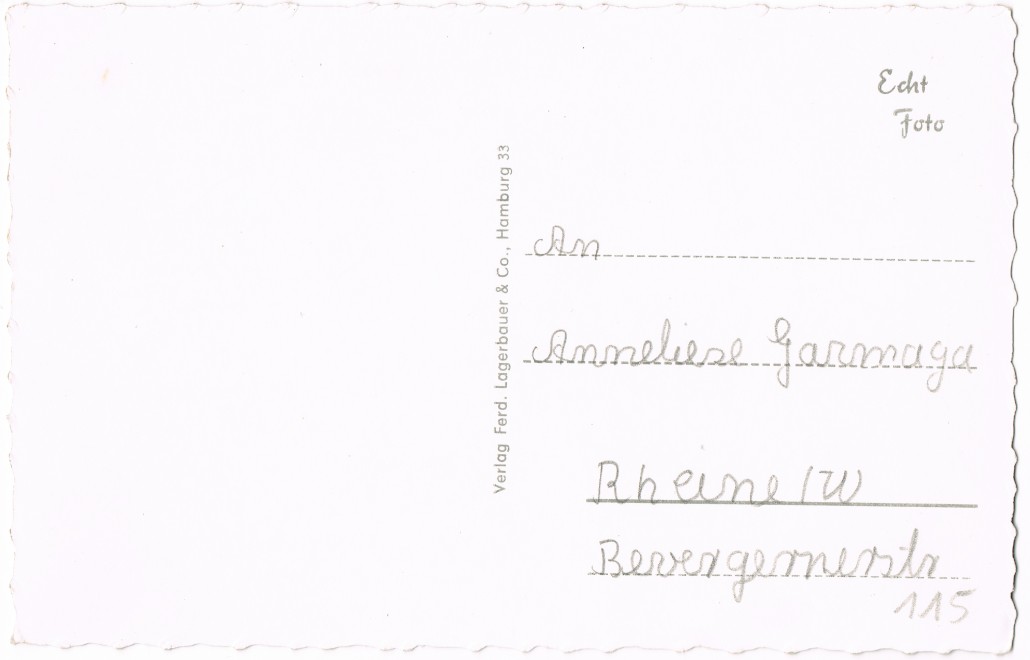 Echt
Foto
Verlag Ferd. Lagerbauer & Co., Hamburg 33
An
Anneliese Garmaga
Rheine/W
Bevergernerstr
115